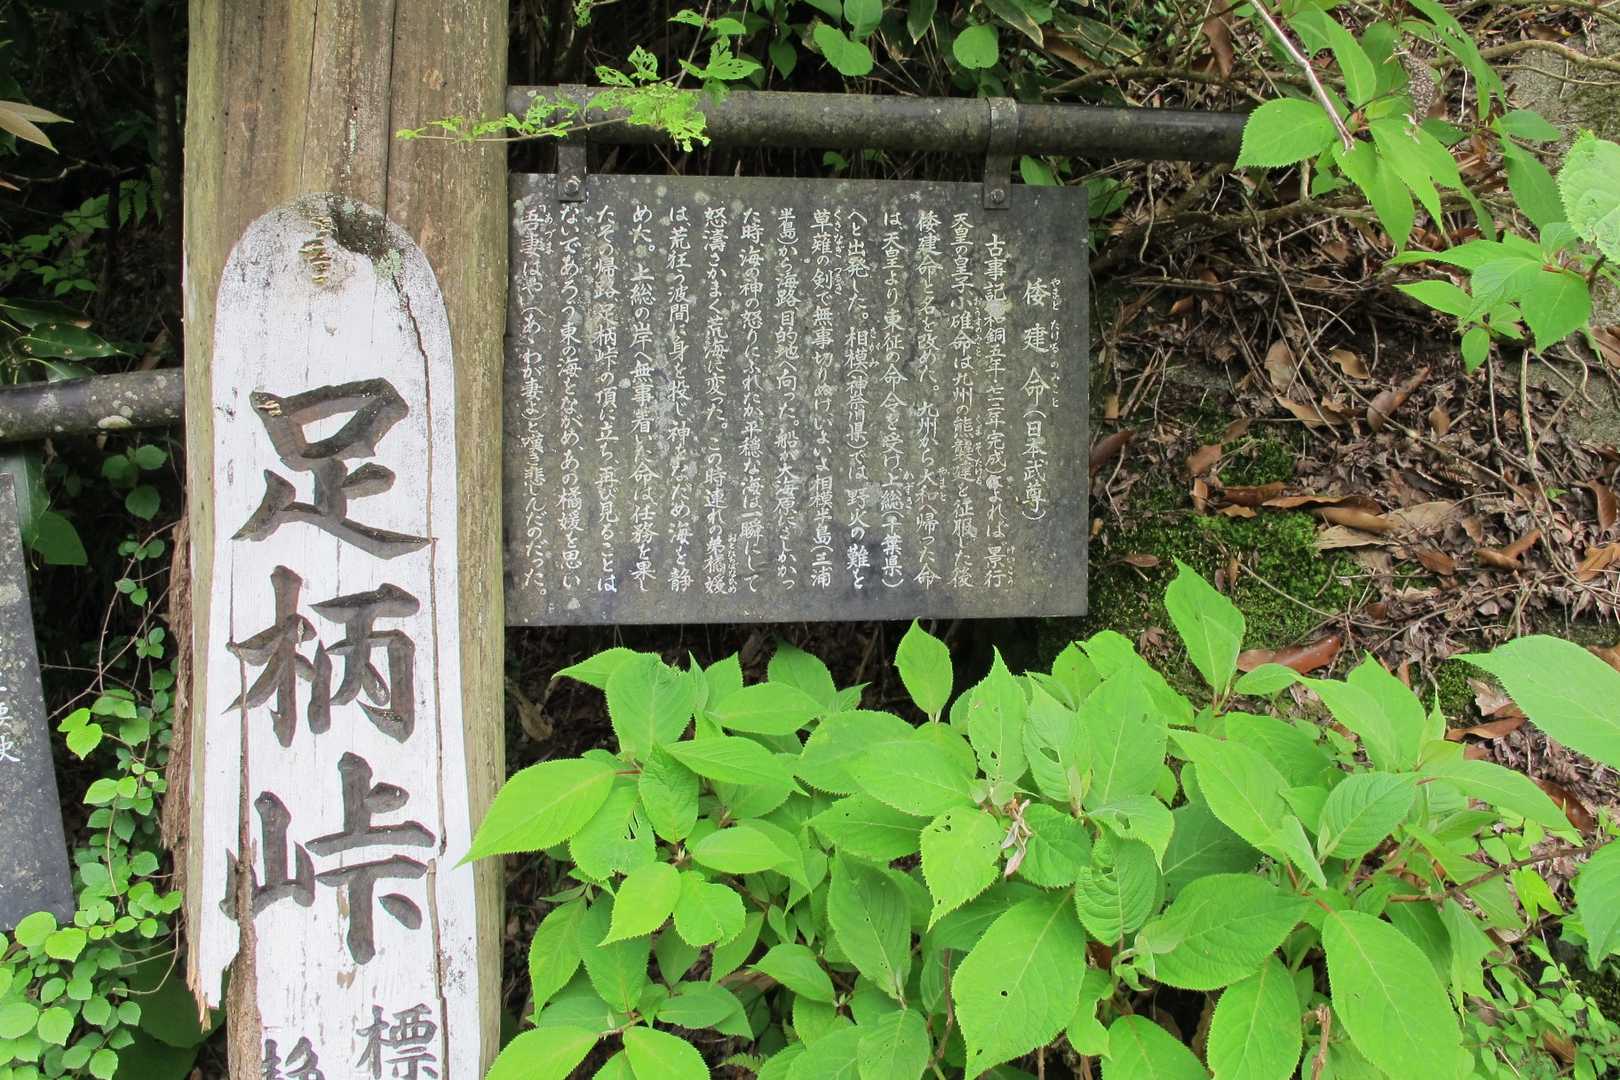 倭建命(日本武尊)
古事記(和銅五年・七一二年完成)によれば、景行
天皇の皇子小碓命は九州の熊襲建を征服した後
倭建命と名を改めた。九州から大和へ帰った命
は、天皇より東征の命令を受け、上総(千葉県)
へと出発した。相模(神奈川県)では、野火の難を
草薙の剣で無事切りぬけ、いよいよ相模半島(三浦
半島)から海路目的地へ向った。船が大海原にさしかかっ
た時、海の神の怒りにふれたか、平穏な海は一瞬にして
怒濤さかまく荒海に変った。この時連れの弟橘媛
は荒狂う波間に身を投じ、神をなだめ海を静
めた。上総の岸へ無事着いた命は任務を果
たその帰路、足柄峠の頂に立ち、再び見ることは
ないであろう東の海をながめ、あの橘媛を思い
「吾妻はや」(あゝわが妻よ)と嘆き悲しんだのだった。
足柄峠
標
静